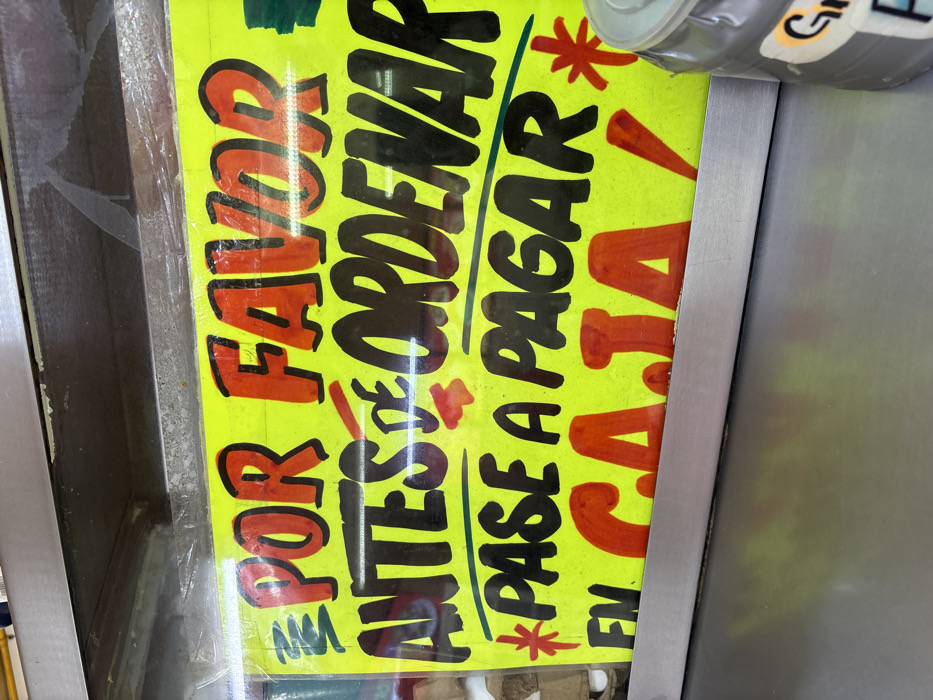 POR FAVOR
ANTES DE ORDENAR
*PASE A PAGAR*
EN CAJA!